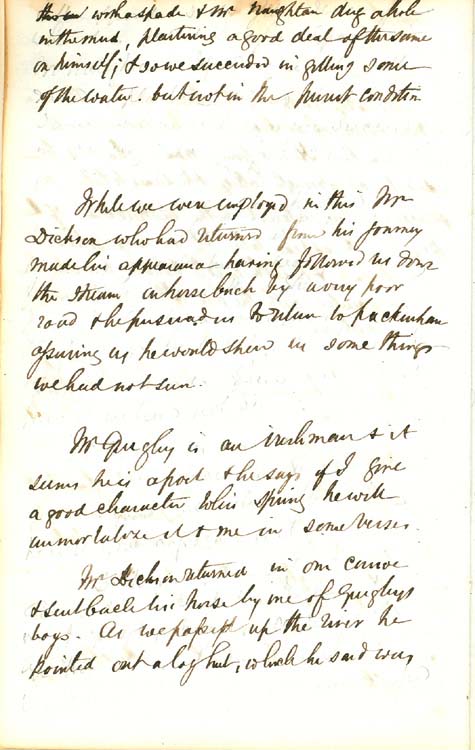 with a spade & Mr Naughtan dug a hole
in the mud, plastering a good deal of the same
on himself; & so we succeeded in getting some
of the water. but not in the purest condition
While we were employed in this Mr
Dickson who had returned from his journey
made his appearance having followed us down
the stream on horseback by a very poor
road & he persuaded us to return to packenham
assuring us he would shew us some things
we had not seen.
Mr Quigley is an irishman & it
seems he is a poet & he says if I give
a good character to his spring he will
immortalize it & me in some verses.
Mr Dickson returned in our canoe
& sent back his horse by one of Quigleys
boys. As we passed up the river he
pointed out a log hut, which he said was